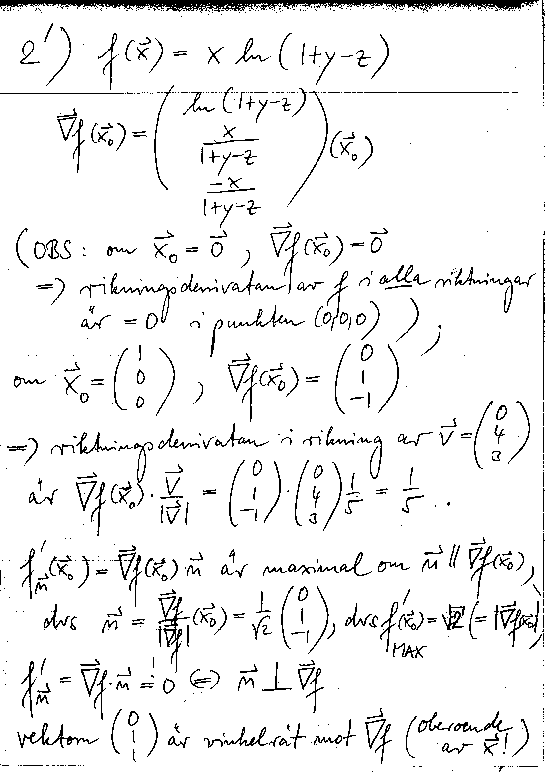 2') f(x⃗) = x ln(1+y-z)
∇⃗f(x⃗₀) = ( ln(1+y-z) ; x/(1+y-z) ; -x/(1+y-z) ) (x⃗₀)
(OBS: om x⃗₀ = 0⃗, ∇⃗f(x⃗₀) = 0⃗
=> rikningsderivatan av f i alla riktningar
är = 0 i punkten (0,0,0) ),
om x⃗₀ = ( 1 ; 0 ; 0 ), ∇⃗f(x⃗₀) = ( 0 ; 1 ; -1 )
=> riktningsderivatan i rikning av v⃗ = ( 0 ; 4 ; 3 )
är ∇⃗f(x⃗₀)·v⃗/|v⃗| = ( 0 ; 1 ; -1 )·( 0 ; 4 ; 3 ) 1/5 = 1/5 .
f'n⃗(x⃗₀) = ∇⃗f(x⃗₀) n⃗ är maximal om n⃗ ∥ ∇⃗f(x⃗₀),
dvs n⃗ = ∇⃗f/|∇⃗f| (x⃗₀) = 1/√2 ( 0 ; 1 ; -1 ), dvs f'MAX(x⃗₀) = √2 (= |∇⃗f(x⃗₀)|
f'n⃗ = ∇⃗f·n⃗ = 0 <=> n⃗ ⊥ ∇⃗f
vektorn ( 0 ; 1 ; 1 ) är vinkelrät mot ∇⃗f (oberoende av x⃗!)